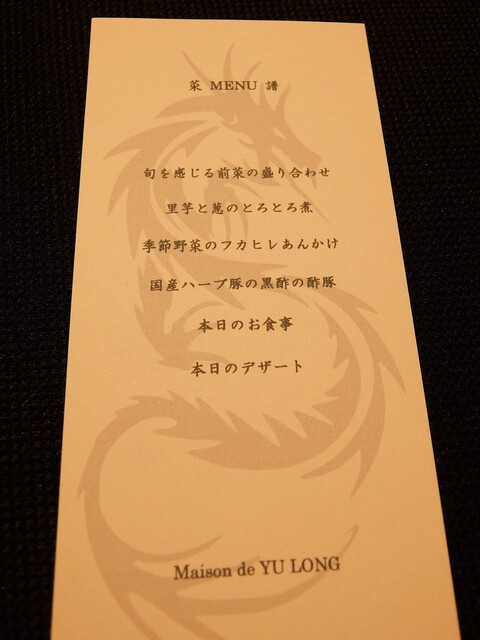 菜 MENU 譜
旬を感じる前菜の盛り合わせ
里芋と葱のとろとろ煮
季節野菜のフカヒレあんかけ
国産ハーブ豚の黒酢の酢豚
本日のお食事
本日のデザート
Maison de YU LONG